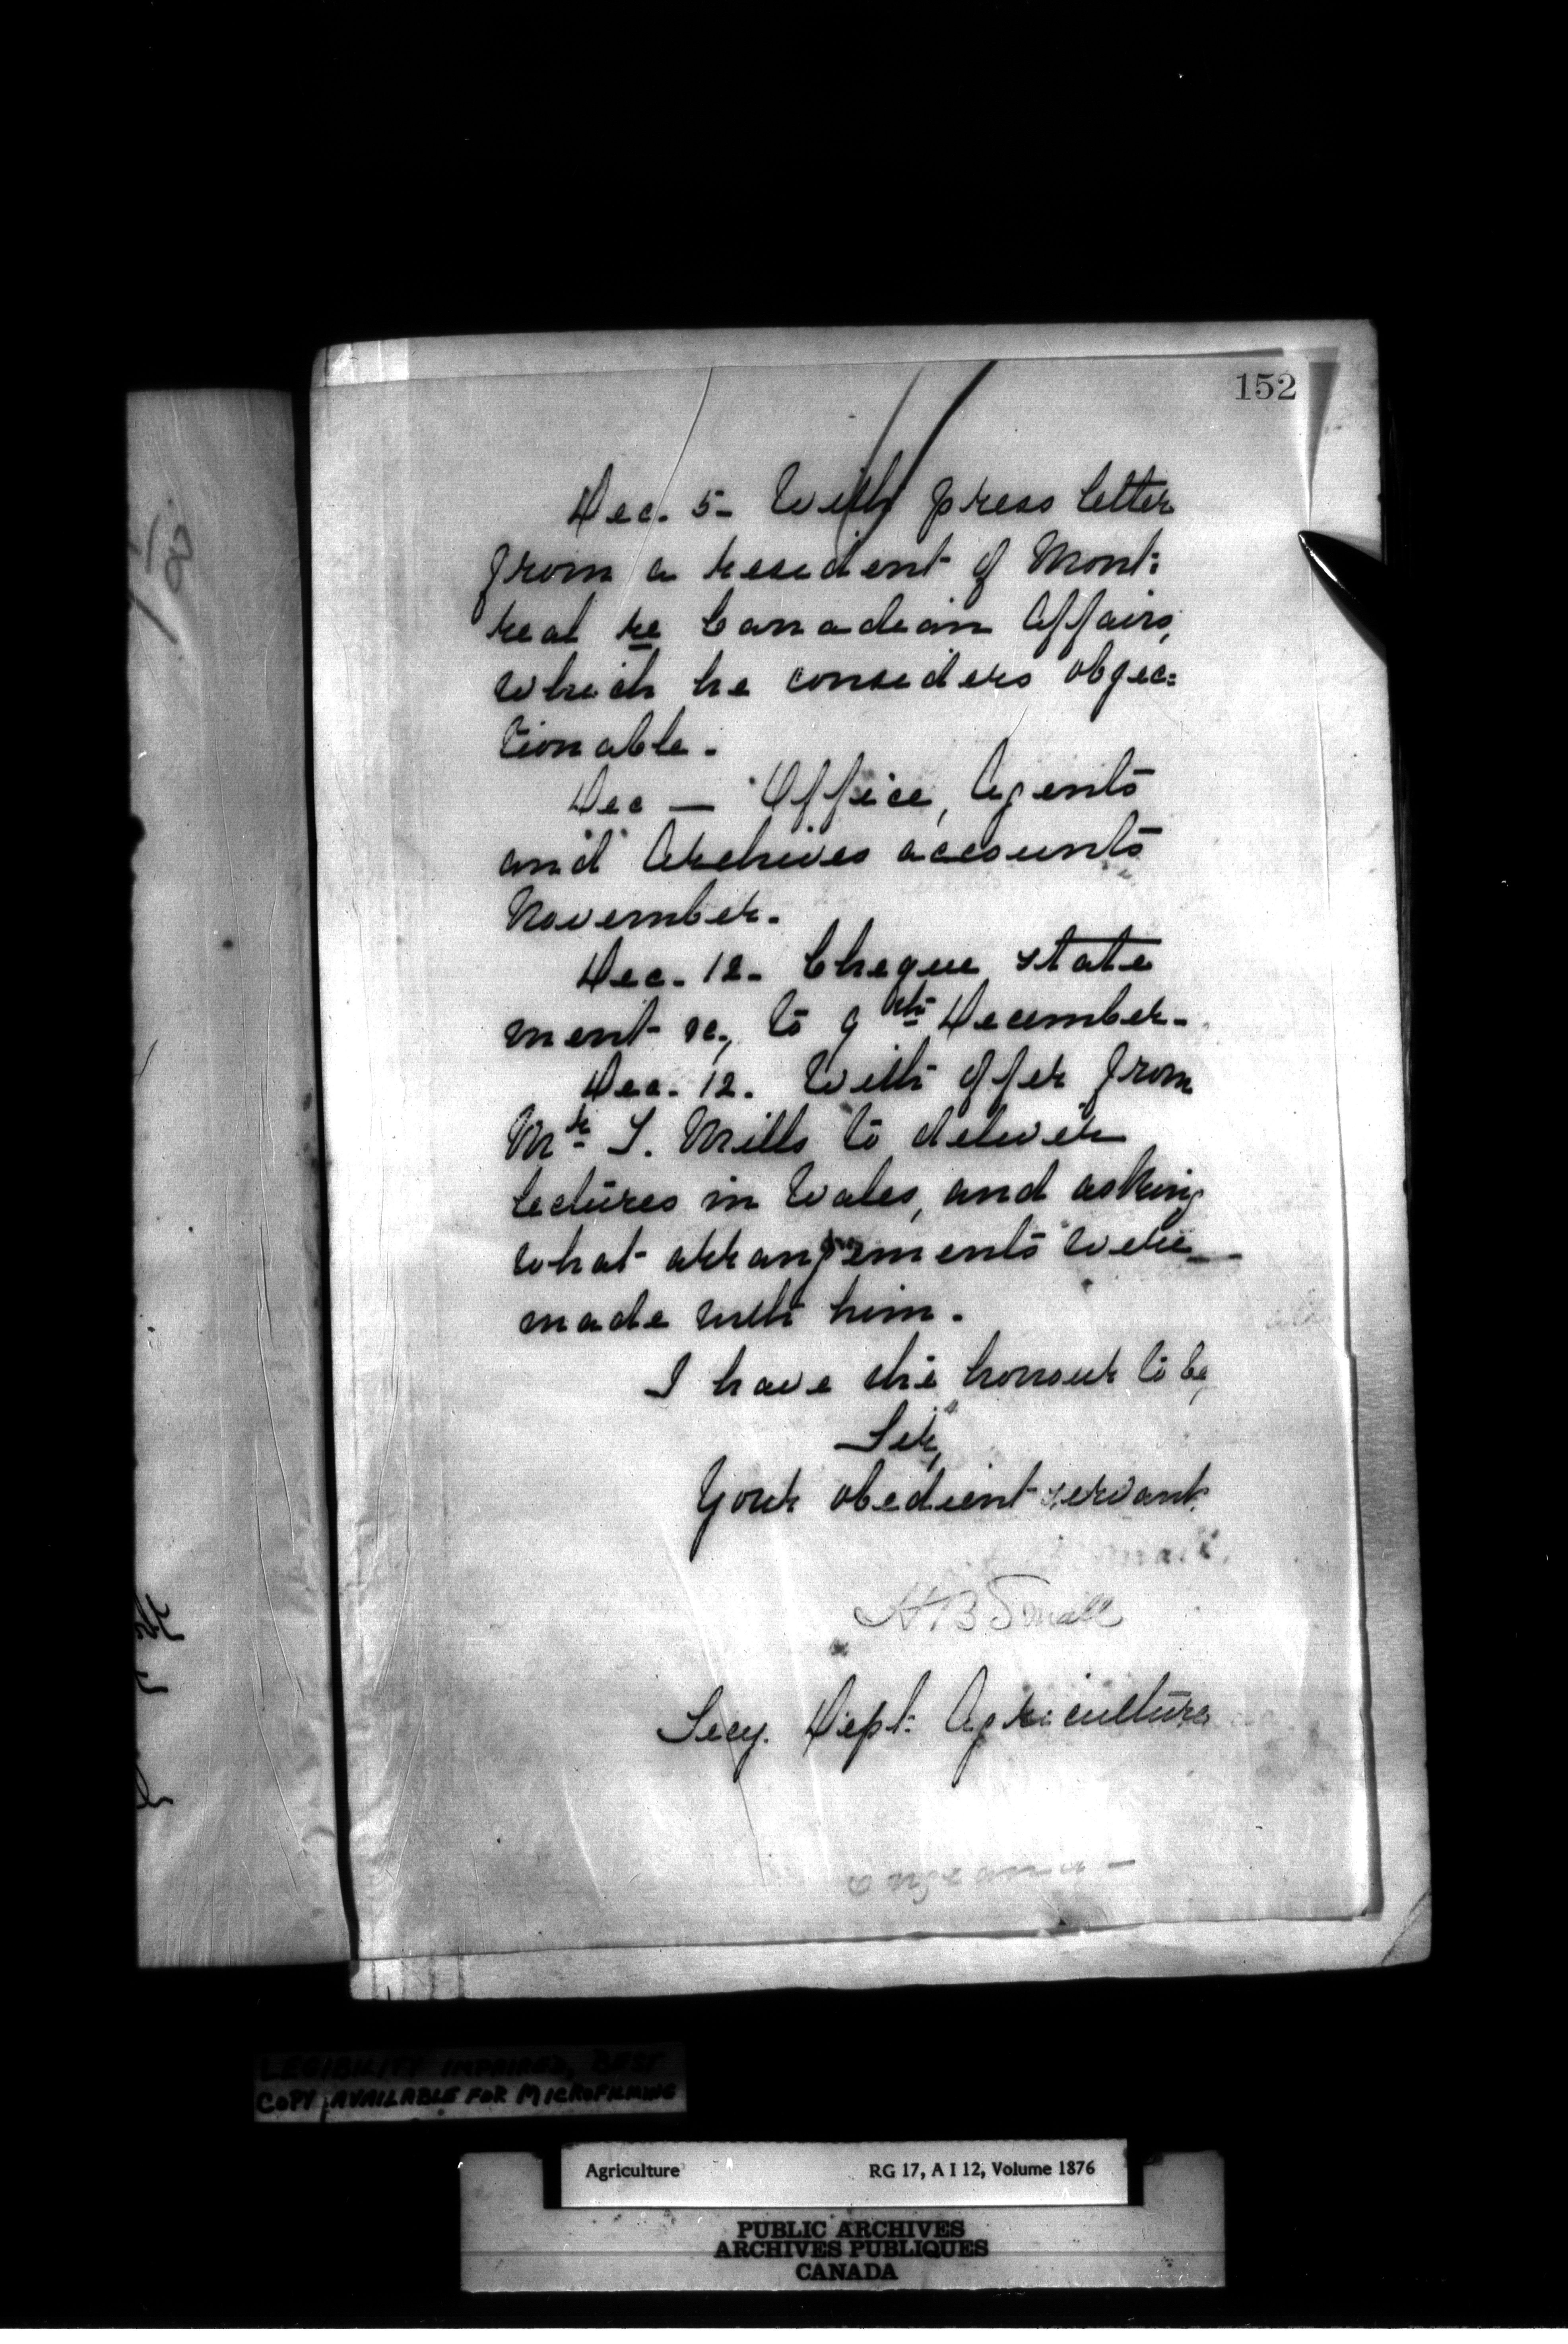 152
Dec. 5- With press letter
from a resident of Mont=
real re Canadian Affairs,
which he considers objec=
tionable.
Dec — Office, Agents
and Archives accounts
November.
Dec. 12. Cheque state
ment &c., to 9th December.
Dec. 12. With offer from
Mr. S. Mills to deliver
lectures in Wales, and asking
what arrangements were
made with him.
I have the honour to be,
Sir,
Your obedient servant
H B Small
Secy. Dept. Agriculture
LEGIBILITY IMPAIRED, BEST
COPY AVAILABLE FOR MICROFILMING
Agriculture RG 17, A I 12, Volume 1876
PUBLIC ARCHIVES
ARCHIVES PUBLIQUES
CANADA